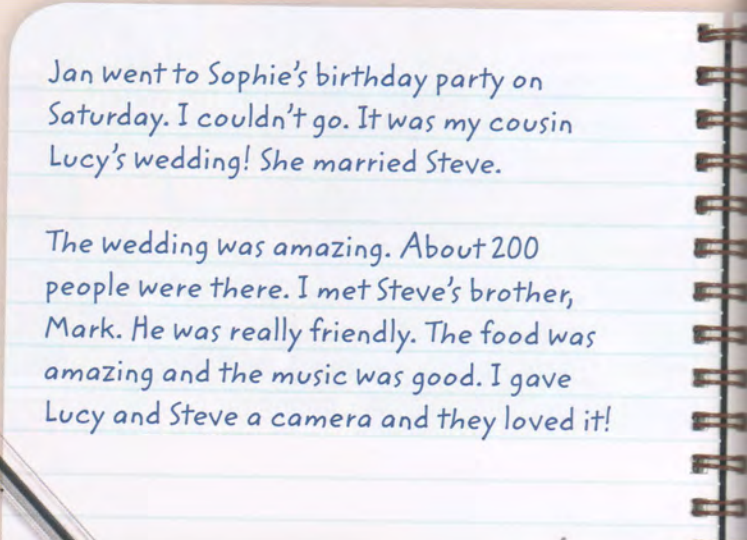 Jan went to Sophie's birthday party on
Saturday. I couldn't go. It was my cousin
Lucy's wedding! She married Steve.
The wedding was amazing. About 200
people were there. I met Steve's brother,
Mark. He was really friendly. The food was
amazing and the music was good. I gave
Lucy and Steve a camera and they loved it!